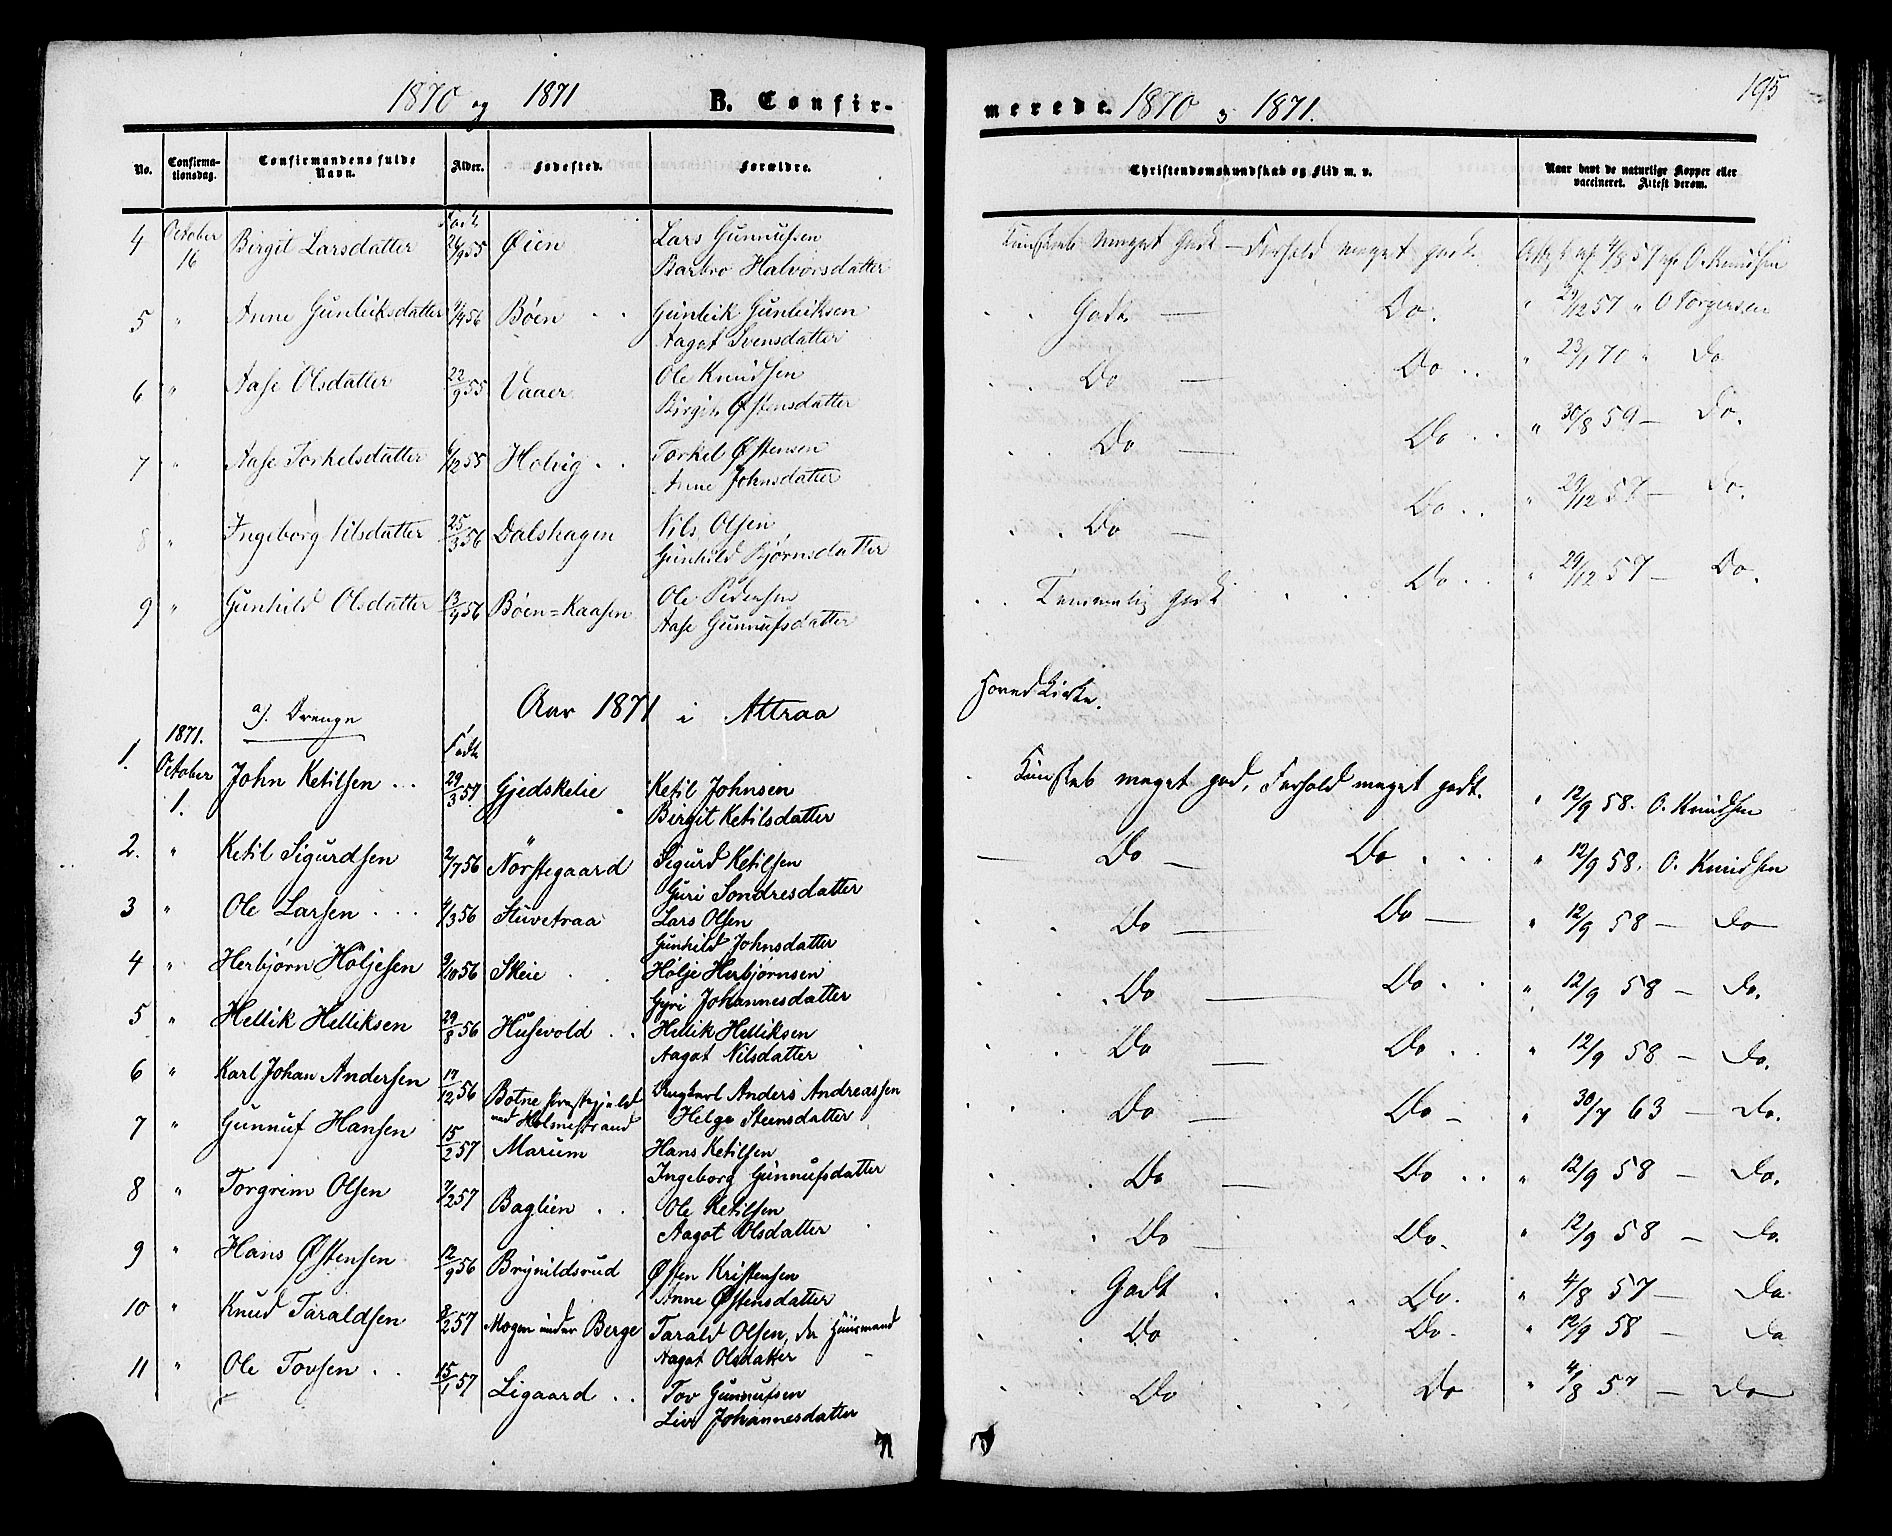 1870 og 1871 B. Confir-
No. Confirma-tionsdag. Confirmandens fulde Navn. Alder. Fødested. Forældre.
4 October 16 Birgit Larsdatter Født 26/9 55 Øien Lars Gunnufsen
Barbro Halvorsdatter
5 " Anne Gunleiksdatter 56 Bøen Gunleik Gunleiksen
Aagot Svensdatter
6 " Aase Olsdatter 22/9 55 Vaaer Ole Knudsen
Birgit Østensdatter
7 " Aase Torkelsdatter 12 55 Holvig Torkel Østensen
Anne Johnsdatter
8 " Ingeborg Nilsdatter 25/3 56 Dalshagen Nils Olsen
Gunhild Bjørnsdatter
9 " Gunhild Olsdatter 13/4 56 Bøen=Kaasen Ole Pedersen
Aase Gunnufsdatter
Aar 1871 i Attraa
a). Drenge
1. 1871. October 1. John Ketilsen Født 29/3 57 Gjedskelie Ketil Johnsen
Birgit Ketilsdatter
2. " Ketil Sigurdsen 2/7 56 Nørstegaard Sigurd Ketilsen
Guri Sondresdatter
3 " Ole Larsen 3 56 Stuvetraa Lars Olsen
Gunhild Johnsdatter
4 " Herbjørn Høljesen 9/10 56 Skeie Hølje Herbjørnsen
Gyri Johannesdatter
5 " Hellik Helliksen 29/8 56 Husevold Hellik Helliksen
Aagot Nilsdatter
6 " Karl Johan Andersen 17/12 56 Botne Præstegjeld ved Holmestrand Ungkarl Anders Andreassen
Helge Steensdatter
7 " Gunnuf Hansen 15/2 57 Marum Hans Ketilsen
Ingeborg Gunnufsdatter
8 " Torgrim Olsen 7/2 57 Baglien Ole Ketilsen
Aagot Olsdatter
9 " Hans Østensen 12/9 56 Brynildsrud Østen Kristensen
Anne Østensdatter
10 " Knud Taraldsen 8/2 57 Mogen under Berge Tarald Olsen, da Huusmand
Aagot Olsdatter
11 " Ole Tovsen 15/1 57 Ligaard Tov Gunnufsen
Liv Johannesdatter
195
merede. 1870 og 1871.
Christendomskundskab og Flid m. v. Naar havt de naturlige Kopper eller vaccineret. Attest derom.
Kundskab meget godt — Forhold meget godt. Attest af 4/8 57 af O. Knudsen
Godt — Do. " 29/12 57 " O Torgersen
Do — Do " 23/1 70 " Do
Do — Do " 30/8 59 — Do.
Do — Do " 29/12 57 — Do.
Temmelig godt Do " 29/12 57 — Do.
Hovedkirke.
Kundskab meget god, Forhold meget godt. " 12/9 58. O. Knudsen
— Do — Do " 12/9 58. O. Knudsen
Do — Do — " 12/9 58 — Do
Do — Do " 12/9 58 — Do.
Do — Do " 12/9 58 — Do.
Do — Do — " 30/7 63 — Do.
Do — Do " 12/9 58 — Do.
Do — Do. " 12/9 58 — Do.
Godt Do. " 4/8 57 — Do
Do Do. " 12/9 58 — Do
Do Do " 4/8 57 — Do